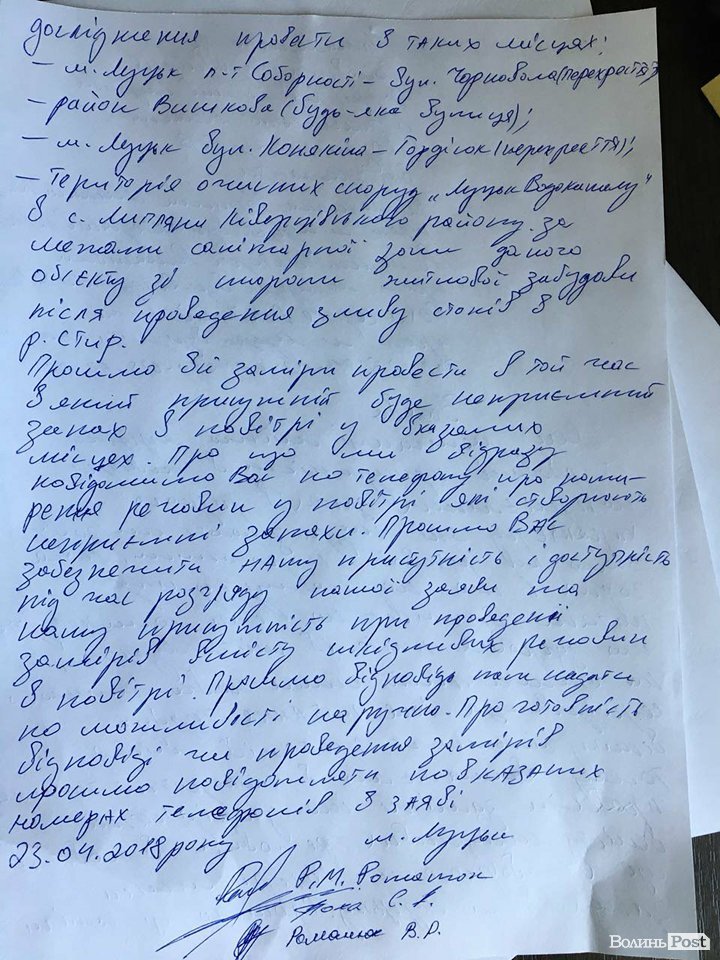 дослідження провести в таких місцях:
– м. Луцьк п-т Соборності – вул. Чорновола (перехрестя);
– район Вишкова (будь-яка вулиця);
– м. Луцьк вул. Конякіна – Гордіюк (перехрестя);
– Територія очисних споруд „Луцьк Водоканалу"
в с. Липляни Ківерцівського району за
межами санітарної зони даного
обієкту зі сторони житлової забудови
після проведення зливу стоків в
р. Стир.
Просимо Всі заміри провести в той час
в який присутній буде неприємний
запах в повітрі у вказаних
місцях. Про що ми відразу
повідомимо Вас по телефону про поши-
рення речовин у повітрі які створюють
неприємні запахи. Просимо Вас
забезпечити нашу присутність і доступність
під час розгляду нашої заяви та
нашу присутність при проведені
замірів вмісту шкідливих речовин
в повітрі. Просимо відповідь нам надати
по можливості наручно. Про готовність
відповіді чи проведення замірів
просимо повідомляти по вказаних
номерах телефонів в заяві
23.04.2018 року м. Луцьк
Р.М.
С.
Романюк В.Р.
ВолиньPost